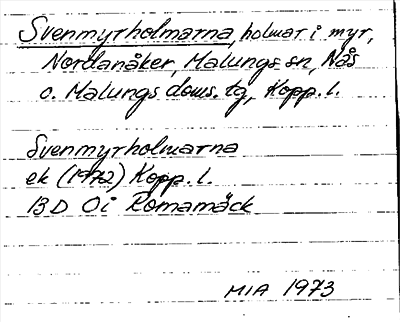 Svenmyrholmarna, holmar i myr,
Nordanåker, Malungs sn, Nås
o. Malungs doms. tg, Kopp. l.
Svenmyrholmarna
ek (1972) Kopp. l.
13 D 0i Romamäck
MIA 1973